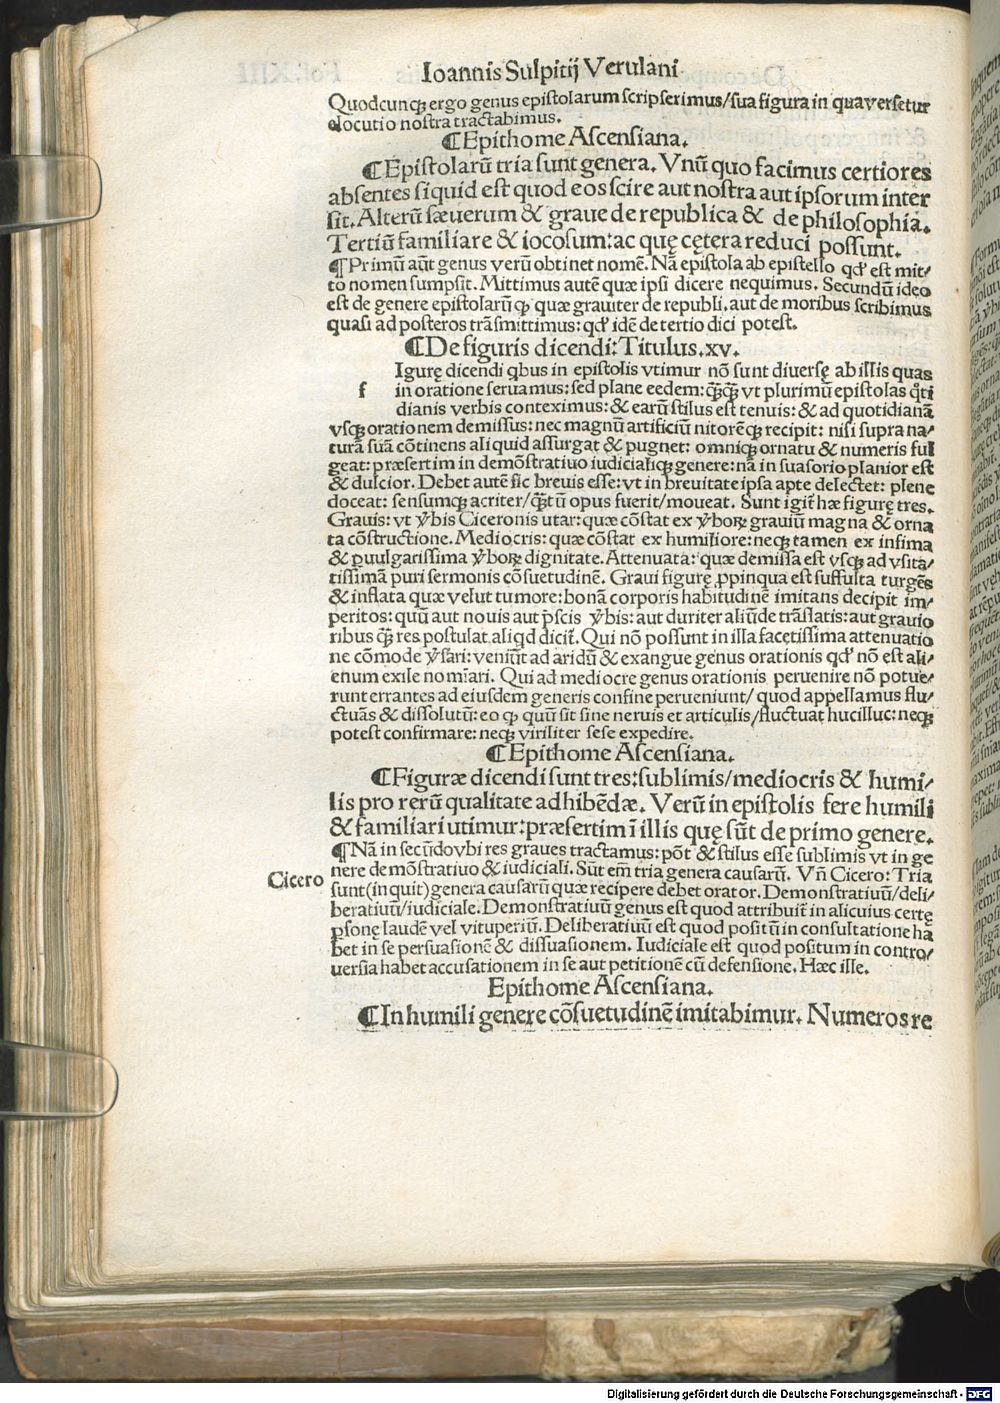 Ioannis Sulpitij Verulani
Quodcunqꝫ ergo genus epistolarum scripserimus/sua figura in qua versetur
elocutio nostra tractabimus.
¶Epithome Ascensiana.
¶Epistolarū tria sunt genera. Vnū quo facimus certiores
absentes siquid est quod eos scire aut nostra aut ipsorum inter
sit. Alterū sæuerum & graue de republica & de philosophia.
Tertiū familiare & iocosum: ac quę cętera reduci possunt.
¶Primū aūt genus verū obtinet nomē. Nā epistola ab epistello qď est mit/
to nomen sumpsit. Mittimus autē quæ ipsi dicere nequimus. Secundū ideo
est de genere epistolarū ꝙ quæ grauiter de republi. aut de moribus scribimus
quasi ad posteros trāsmittimus: qď idē de tertio dici potest.
¶De figuris dicendi: Titulus. xv.
Igurę dicendi qbus in epistolis vtimur nō sunt diuersę ab illis quas
f in oratione seruamus: sed plane eedem: qꝫqꝫ vt plurimū epistolas q̊ti
dianis verbis conteximus: & earū stilus est tenuis: & ad quotidianā
vsqꝫ orationem demissus: nec magnū artificiū nitorēqꝫ recipit: nisi supra na/
turā suā cōtinens aliquid assurgat & pugnet: omniqꝫ ornatu & numeris ful
geat: præsertim in demōstratiuo iudicialiqꝫ genere: nā in suasorio planior est
& dulcior. Debet autē sic breuis esse: vt in breuitate ipsa apte delectet: plene
doceat: sensumqꝫ acriter/qꝫtū opus fuerit/moueat. Sunt igit̄ hæ figurę tres.
Grauis: vt v̆bis Ciceronis utar: quæ cōstat ex v̆boꝝ grauiū magna & orna
ta cōstructione. Mediocris: quæ cōstat ex humiliore: neqꝫ tamen ex infima
& ꝑuulgarissima v̆boꝝ dignitate. Attenuata: quæ demissa est vsqꝫ ad vsita/
tissimā puri sermonis cōsuetudinē. Graui figurę ꝓpinqua est suffulta turgēs
& inflata quæ velut tumore: bonā corporis habitudinē imitans decipit im/
peritos: quū aut nouis aut p̄scis v̆bis: aut duriter aliūde trāslatis: aut grauio
ribus qꝫ res postulat aliqd dicit̄. Qui nō possunt in illa facetissima attenuatio
ne cōmode v̆sari: veniūt ad aridū & exangue genus orationis qď nō est ali/
enum exile nomīari. Qui ad mediocre genus orationis peruenire nō potue/
runt errantes ad eiusdem generis confine perueniunt/ quod appellamus flu/
ctuās & dissolutū: eo ꝙ quū sit sine neruis et articulis/fluctuat huc illuc: neqꝫ
potest confirmare: neqꝫ viriliter sese expedire.
¶Epithome Ascensiana.
¶Figuræ dicendi sunt tres: sublimis/mediocris & humi/
lis pro rerū qualitate adhibēdæ. Verū in epistolis fere humili
& familiari utimur: præsertim ī illis quę sūt de primo genere.
¶Nā in secūdo vbi res graues tractamus: pōt & stilus esse sublimis vt in ge
nere demōstratiuo & iudiciali. Sūt em̄ tria genera causarū. Vn̄ Cicero: Tria
Cicero
sunt (inquit) genera causarū quæ recipere debet orator. Demonstratiuū/deli/
beratiuū/iudiciale. Demonstratiuū genus est quod attribuit̄ in alicuius certę
ꝑsonę laudē vel vituperiū. Deliberatiuū est quod positū in consultatione ha
bet in se persuasionē & dissuasionem. Iudiciale est quod positum in contro/
uersia habet accusationem in se aut petitionē cū defensione. Hæc ille.
Epithome Ascensiana.
¶In humili genere cōsuetudinē imitabimur. Numeros re
Digitalisierung gefördert durch die Deutsche Forschungsgemeinschaft - DFG